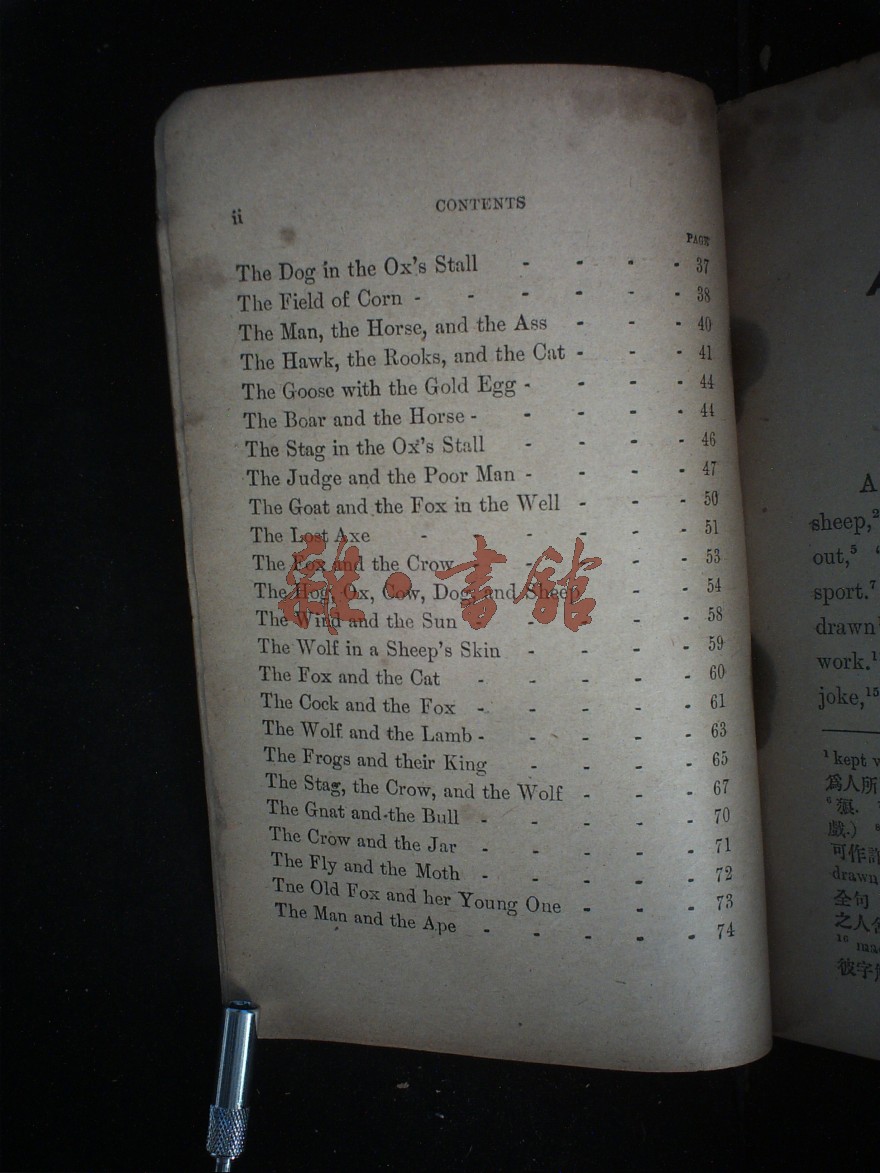 ii CONTENTS
PAGE
The Dog in the Ox's Stall - - - - 37
The Field of Corn - - - - - - 38
The Man, the Horse, and the Ass - - - 40
The Hawk, the Rooks, and the Cat - - - 41
The Goose with the Gold Egg - - - - 44
The Boar and the Horse - - - - - 44
The Stag in the Ox's Stall - - - - 46
The Judge and the Poor Man - - - - 47
The Goat and the Fox in the Well - - - 50
The Lost Axe - - - - - - 51
The Fox and the Crow - - - - 53
The Hog, Ox, Cow, Dog, and Sheep - - 54
The Wind and the Sun - - - - - 58
The Wolf in a Sheep's Skin - - - - 59
The Fox and the Cat - - - - - 60
The Cock and the Fox - - - - - 61
The Wolf and the Lamb - - - - - 63
The Frogs and their King - - - - 65
The Stag, the Crow, and the Wolf - - - 67
The Gnat and the Bull - - - - - 70
The Crow and the Jar - - - - - 71
The Fly and the Moth - - - - - 72
Tne Old Fox and her Young One - - - 73
The Man and the Ape - - - - - 74
雜·書館
A
sheep,²
out,⁵
sport.⁷
drawn
work.¹
joke,¹⁵
¹ kept
爲人所
⁶
戲.)
可作
drawn
全句
之人
¹⁶
彼字